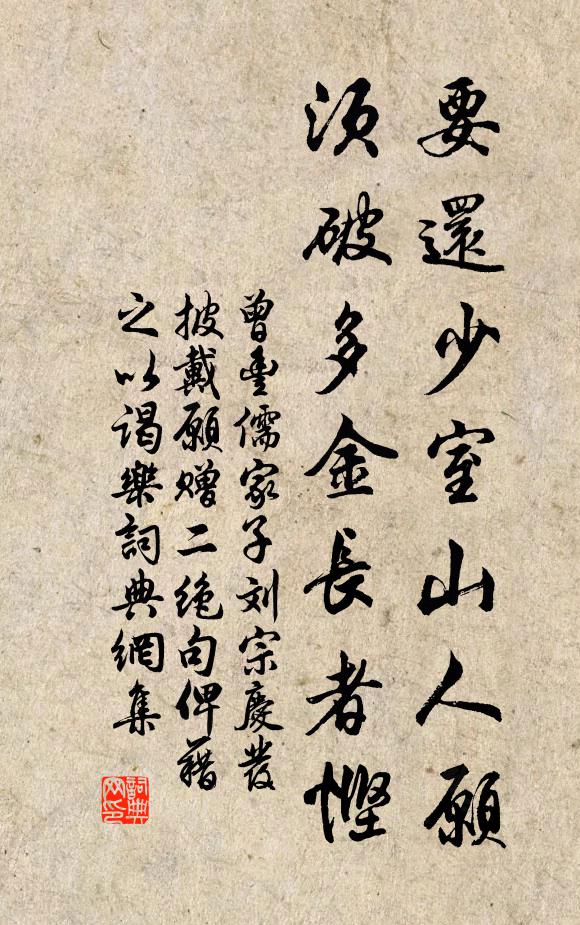 要還少室山人願
須破多金長者慳
曾豐儒家子刘宗慶裝
披戴願贈二绝句俾藉
之以谒樂詞典網集
詞典網印